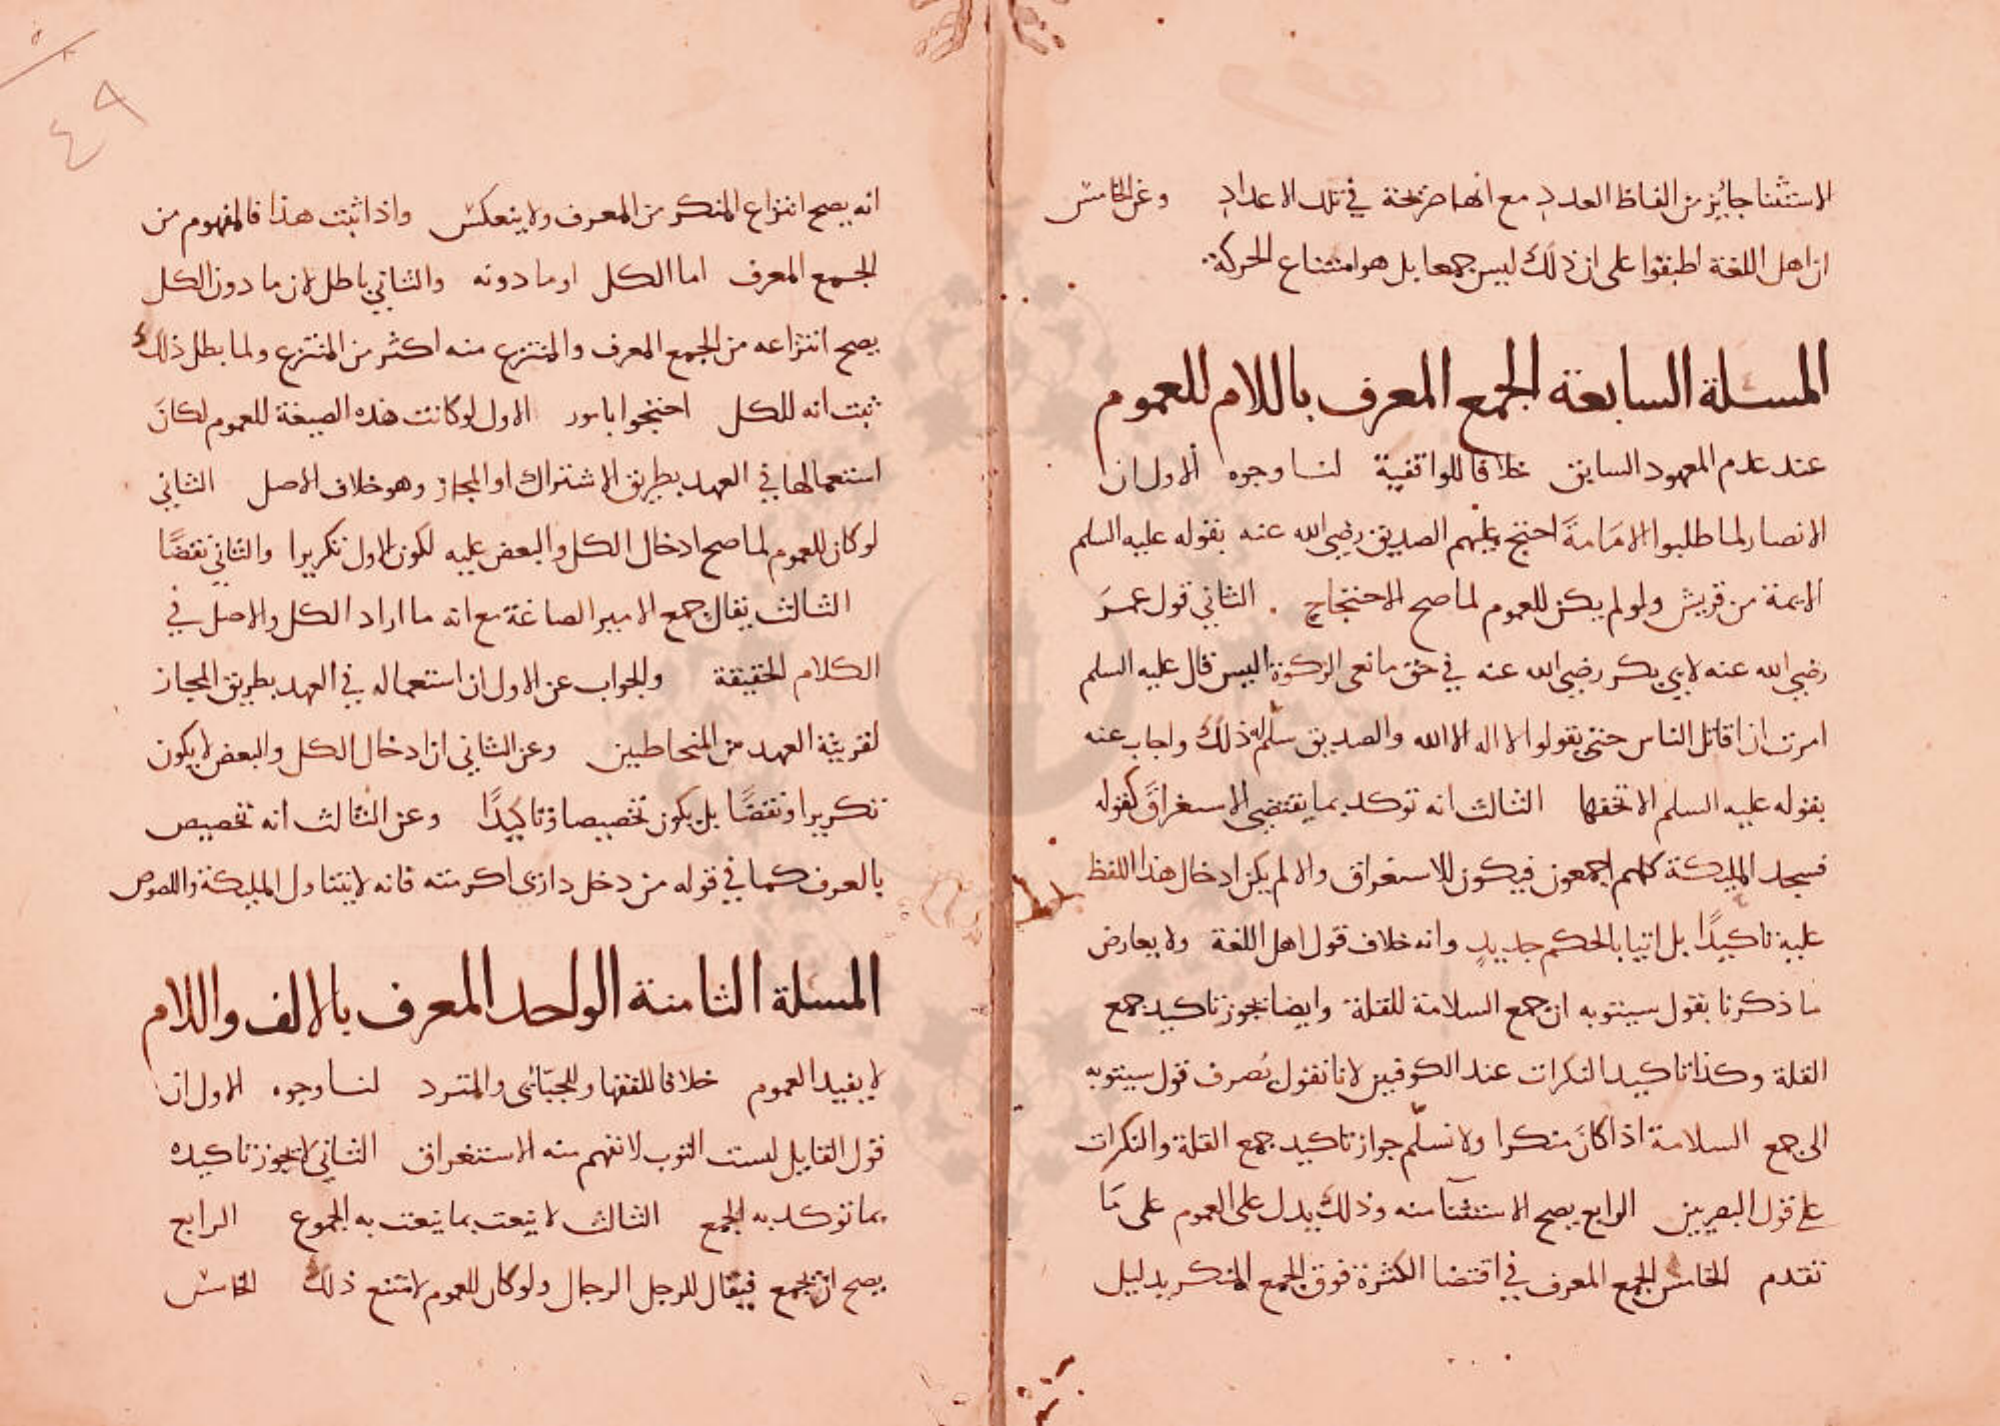 الاستثنا جايز من الفاظ العدد مع انها صريحة في تلك الاعداد وعن الخامس
ان اهل اللغة اطبقوا على ان ذلك ليس جمعا بل هو امتناع الحركة
المسئلة السابعة الجمع المعرف باللام للعموم
عند عدم المعهود السابق خلافا للواقفية لنا وجوه الاول ان
الانصار لما طلبوا الامامة احتج عليهم الصديق رضي الله عنه بقوله عليه السلم
الايمة من قريش ولو لم يكن للعموم لما صح الاحتجاج الثاني قول عمر
رضي الله عنه لابي بكر رضي الله عنه في حق مانعي الزكوة اليس قال عليه السلم
امرت ان اقاتل الناس حتى يقولوا لا اله الا الله والصديق سلم له ذلك واجاب عنه
بقوله عليه السلم الا بحقها الثالث انه توكد بما يقتضي الاستغراق كقوله
فسجد المليكة كلهم اجمعون فيكون للاستغراق والا لم يكن ادخال هذا اللفظ
عليه تاكيدًا بل اتيا بالحكم جديد وانه خلاف قول اهل اللغة ولا يعارض
ما ذكرنا بقول سيبويه ان جمع السلامة للقلة وايضا يجوز تاكيد جمع
القلة وكذا تاكيد النكرات عند الكوفيين لانا نقول نصرف قول سيبويه
الى جمع السلامة اذا كان منكرا ولا نسلم جواز تاكيد جمع القلة والنكرات
على قول البصريين الرابع يصح الاستثنا منه وذلك يدل على العموم على ما
تقدم الخامس الجمع المعرف في اقتضا الكثرة فوق الجمع المنكر بدليل
٤٩
انه يصح انتزاع المنكر من المعرف ولا ينعكس واذا ثبت هذا فالمفهوم من
الجمع المعرف اما الكل او ما دونه والثاني باطل لان ما دون الكل
يصح انتزاعه من الجمع المعرف والمنتزع منه اكثر من المنتزع ولما بطل ذلك
ثبت انه للكل احتجوا بامور الاول لو كانت هذه الصيغة للعموم لكان
استعمالها في العهد بطريق الاشتراك او المجاز وهو خلاف الاصل الثاني
لو كان للعموم لما صح ادخال الكل والبعض عليه لكون الاول تكريرا والثاني نقضًا
الثالث يقال جمع الامير الصاغة مع انه ما اراد الكل والاصل في
الكلام الحقيقة والجواب عن الاول ان استعماله في العهد بطريق المجاز
لقرينة العهد من المتخاطبين وعن الثاني ان ادخال الكل والبعض لا يكون
تكريرا ونقضًا بل يكون تخصيصا وتاكيدًا وعن الثالث انه تخصيص
بالعرف كما في قوله من دخل داري اكرمته فانه لا يتناول المليكة واللصوص
المسئلة الثامنة الواحد المعرف بالالف واللام
لا يفيد العموم خلافا للفقها وللجبّائى والمبرد لنا وجوه الاول ان
قول القايل لبست الثوب لا نفهم منه الاستغراق الثاني لا يجوز تاكيده
بما توكد به الجمع الثالث لا ينعت بما ينعت به الجموع الرابع
يصح ان يجمع فيقال للرجل الرجال ولو كان للعموم لامتنع ذلك الخامس